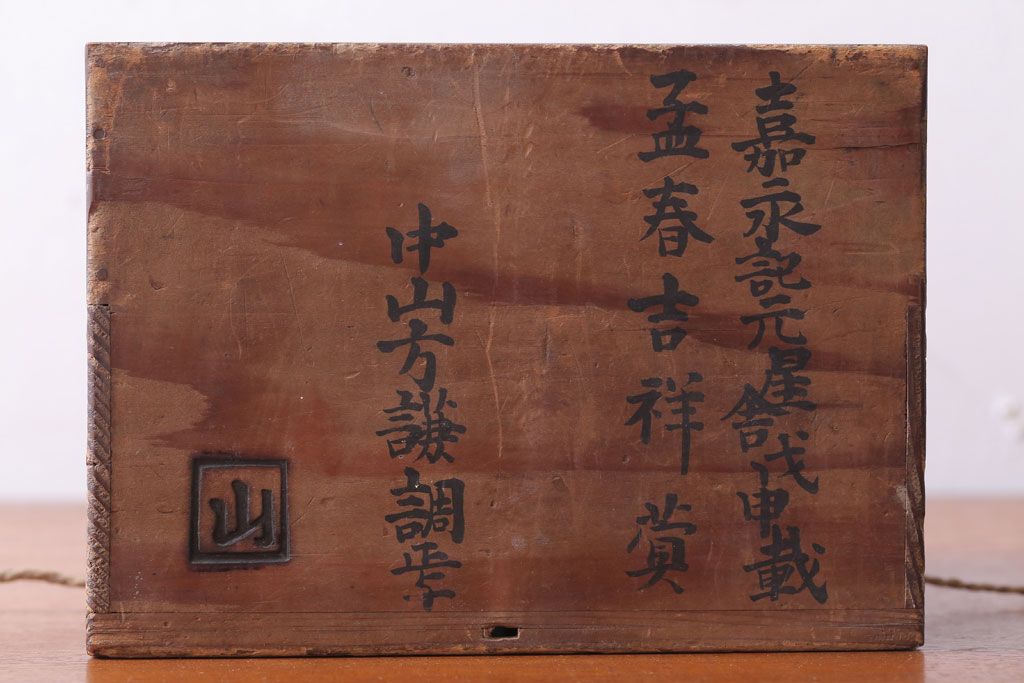 嘉永記元星舎戊申載
孟春吉祥賞
中山方謙調焉
山